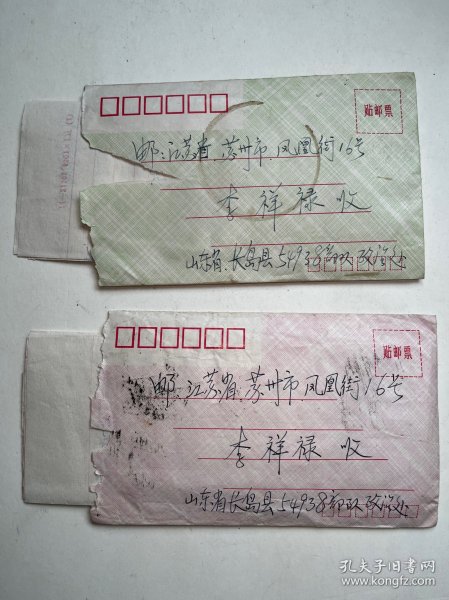 贴邮票
邮:江苏省 苏州市 凤凰街16号
李祥禄 收
山东省 长岛县 54938部队 政治处
贴邮票
邮:江苏省 苏州市 凤凰街16号
李祥禄 收
山东省长岛县54938部队 政治处
孔夫子旧书网
www.kongfz.com